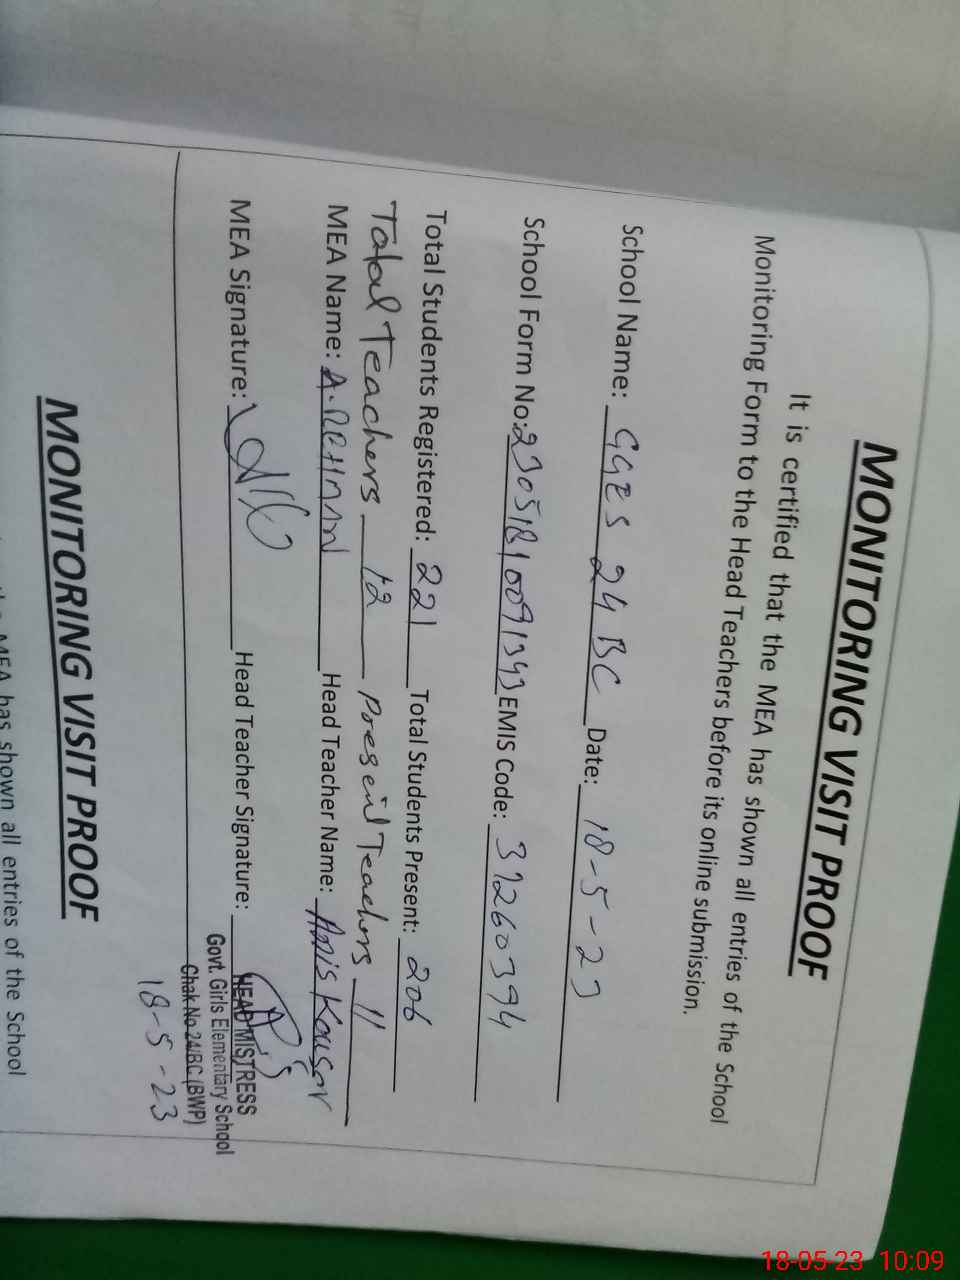 MONITORING VISIT PROOF
It is certified that the MEA has shown all entries of the School
Monitoring Form to the Head Teachers before its online submission.
School Name: GGES 24 BC Date: 18-5-23
School Form No: 23051810091343 EMIS Code: 31260394
Total Students Registered: 221 Total Students Present: 206
Total Teachers 12 Present Teachers 11
MEA Name: A.REHMAN Head Teacher Name: Anis Kousar
MEA Signature: Head Teacher Signature:
HEAD MISTRESS
Govt. Girls Elementary School
Chak No 24/BC (BWP)
18-5-23
MONITORING VISIT PROOF
MEA has shown all entries of the School
18-05-23 10:09